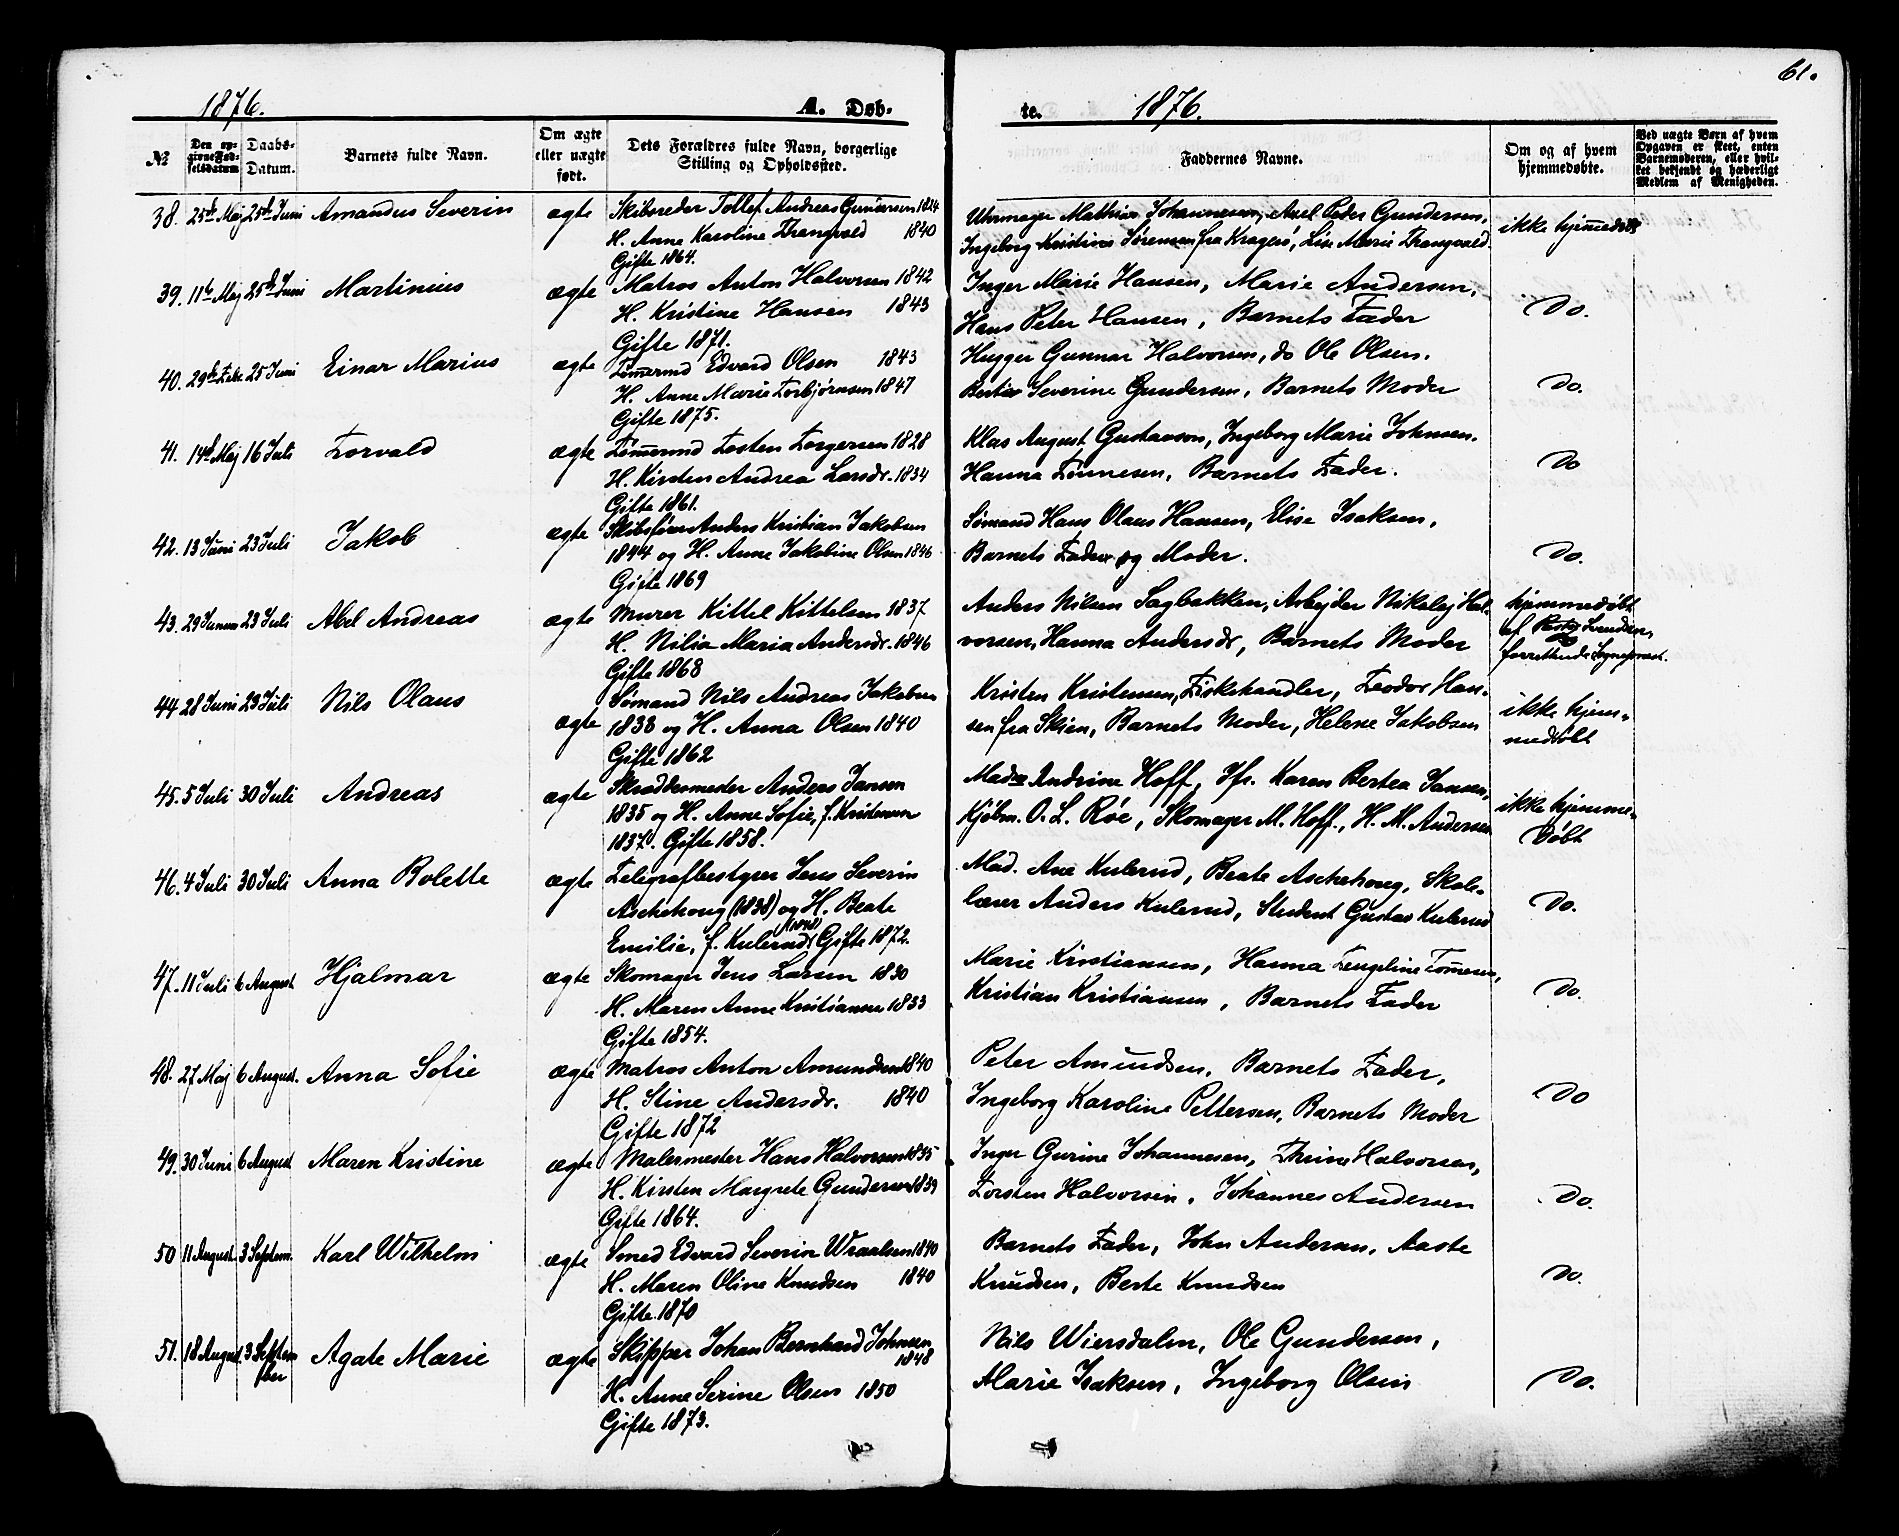 61.
1876. A. Døb- te. 1876.
№ Den opgivne Fødselsdatum Daabs-Datum. Barnets fulde Navn. Om ægte eller uægte født. Dets Forældres fulde Navn, borgerlige Stilling og Opholdssted. Faddernes Navne. Om og af hvem hjemmedøbte. Ved uægte Børn af hvem Opgaven er skeet, enten Barnemoderen, eller hvilket bekjendt og hæderligt Medlem af Menigheden.
38. 25de Maj 25de Juni Amandus Severin ægte Skibsreder Tollef Andreas Gundersen 1824 Uhrmager Mathias Johannesen, Axel Peder Gundersen, ikke hjemmedøbt
H. Anne Karoline Trangvald 1840 Ingeborg Kristine Sørensen fra Kragerø, Lise Marie Trangvald.
Gifte 1864.
39. 11te Maj 25de Juni Martinius ægte Matros Anton Halvorsen 1842 Inger Marie Hansen, Marie Andersen, Do.
H. Kristine Hansen 1843 Hans Peter Hansen, Barnets Fader
Gifte 1871.
40. 29de Febr 25 Juni Einar Marius ægte Tømermd Edvard Olsen 1843 Hugger Gunnar Halvorsen, do Ole Olsen. Do.
H. Anne Marie Torbjørnsen 1847 Severine Gundersen, Barnets Moder
Gifte 1875.
41. 14de Maj 16 Juli Torvald ægte Tømermd Tosten Torgersen 1828 Klas August Gustavson, Ingeborg Marie Johnsen. Do
H. Kirsten Andrea Larsdr. 1834 Hanna Tønnesen, Barnets Fader.
Gifte 1861.
42. 13 Juni 23 Juli Jakob ægte Skibsfører Anders Kristian Jakobsen Sømand Hans Olaus Hansen, Elise Isaksen, Do.
1844 og H. Anne Jakobine Olsen 1846 Barnets Fader og Moder.
Gifte 1869
43. 29 Januar 23 Juli Abel Andreas ægte Murer Kittel Kittelsen 1837 Anders Nilsen Sagbakken, Arbejder Nikolaj Hal- hjemmedøbt
H. Nilia Maria Andersdr. 1846 vorsen, Hanna Andersdr, Barnets Moder af
Gifte 1868 forrettende Sognepræst.
44 28 Juni 23 Juli Nils Olaus ægte Sømand Nils Andreas Jakobsen Kristen Kristensen, Fiskehandler, Teodor Han- ikke hjem-
1838 og H. Anna Olsen 1840 sen fra Skien, Barnets Moder, Helene Jakobsen medøbt
Gifte 1862
45. 5 Juli 30 Juli Andreas ægte Skræddermester Anders Jansen Madm Andrine Hoff, Jfr. Karen Bertea Jansen, ikke hjemme-
1835 og H. Anne Sofie, f. Kristensen Kjøbm. O. L. Røe, Skomager M. Hoff, H. M. Andersen døbt
1837. Gifte 1858.
46. 4 Juli 30 Juli Anna Bolette ægte Telegrafbestyrer Jens Severin Mad. Ane Kulerud, Beate Aschehoug, Skole- Do.
Aschehoug (1838) og H. Beate lærer Anders Kulerud, Student Gustav Kulerud
Emilie, f. Kulerud. Gifte 1872.
47. 11 Juli 6 August Hjalmar ægte Skomager Jens Larsen 1830 Marie Kristiansen, Hanna Engeline Tønnesen, Do.
H. Maren Anne Kristiansen 1833 Kristian Kristiansen, Barnets Fader
Gifte 1854.
48. 27 Maj 6 August. Anna Sofie ægte Matros Anton Amundsen 1840 Peter Amundsen, Barnets Fader, Do
H. Stine Andersdr. 1840 Ingeborg Karoline Pettersen, Barnets Moder
Gifte 1872
49. 30 Juni 6 August Maren Kristine ægte Malermester Hans Halvorsen 1835 Inger Gurine Johannesen, Thrine Halvorsen, Do.
H. Kirsten Margrete Gundersen 1839 Torsten Halvorsen, Johannes Andersen
Gifte 1864.
50 11 August. 3 Septem. Karl Wilhelm ægte Smed Edvard Severin Wraalsen 1840 Barnets Fader, John Andersen, Aaste Do.
H. Maren Oline Knudsen 1840 Knudsen, Berte Knudsen
Gifte 1870
51. 18 August. 3 Septem Agate Marie ægte Skipper Johan Bernhard Johnsen Nils Wiersdalm, Ole Gundersen, Do.
ber 1848
H. Anne Serine Olsen 1850 Marie Isaksen, Ingeborg Olsen
Gifte 1873.